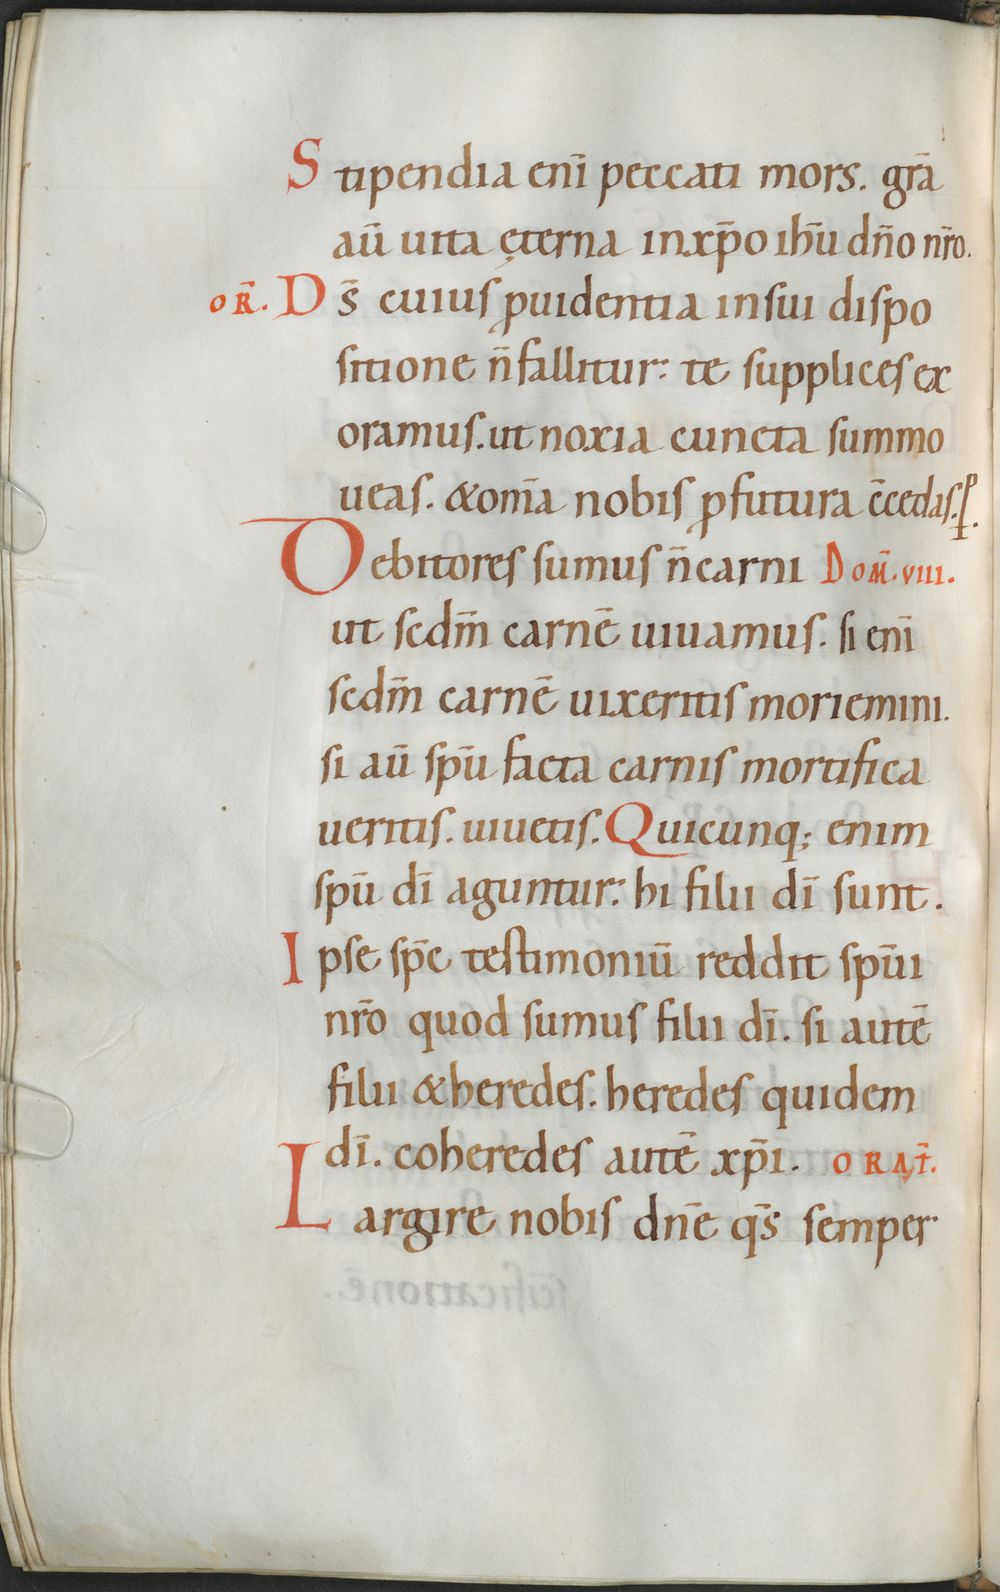 Stipendia eni̅ peccati mors. gr̅a
au̅ uita ęterna inxp̅o ihu̅ dn̅o nr̅o.
OR̅. DS̅ cuius ꝓuidentia insui dispo
sitione n̅ fallitur: te supplices ex
oramus. ut noxia cuncta summo
ueas. &om̅a nobis ꝓfutura c̅cedas. ꝑ.
Debitores sumus n̅ carni DOM̅. VIII.
ut scdm̅ carne̅ uiuamus. si eni̅
scdm̅ carne̅ uixeritis moriemini.
si au̅ spu̅ facta carnis mortifica
ueritis. uiuetis. Quicunq; enim
spu̅ di̅ aguntur: hi filii di̅ sunt.
Ipse sp̅c testimoniu̅ reddit spu̅i
nr̅o quod sumus filii di̅. si aute̅
filii &heredes. heredes quidem
di̅. coheredes aute̅ xp̅i. ORAT̅.
Largire nobis dn̅e qs̅ semper